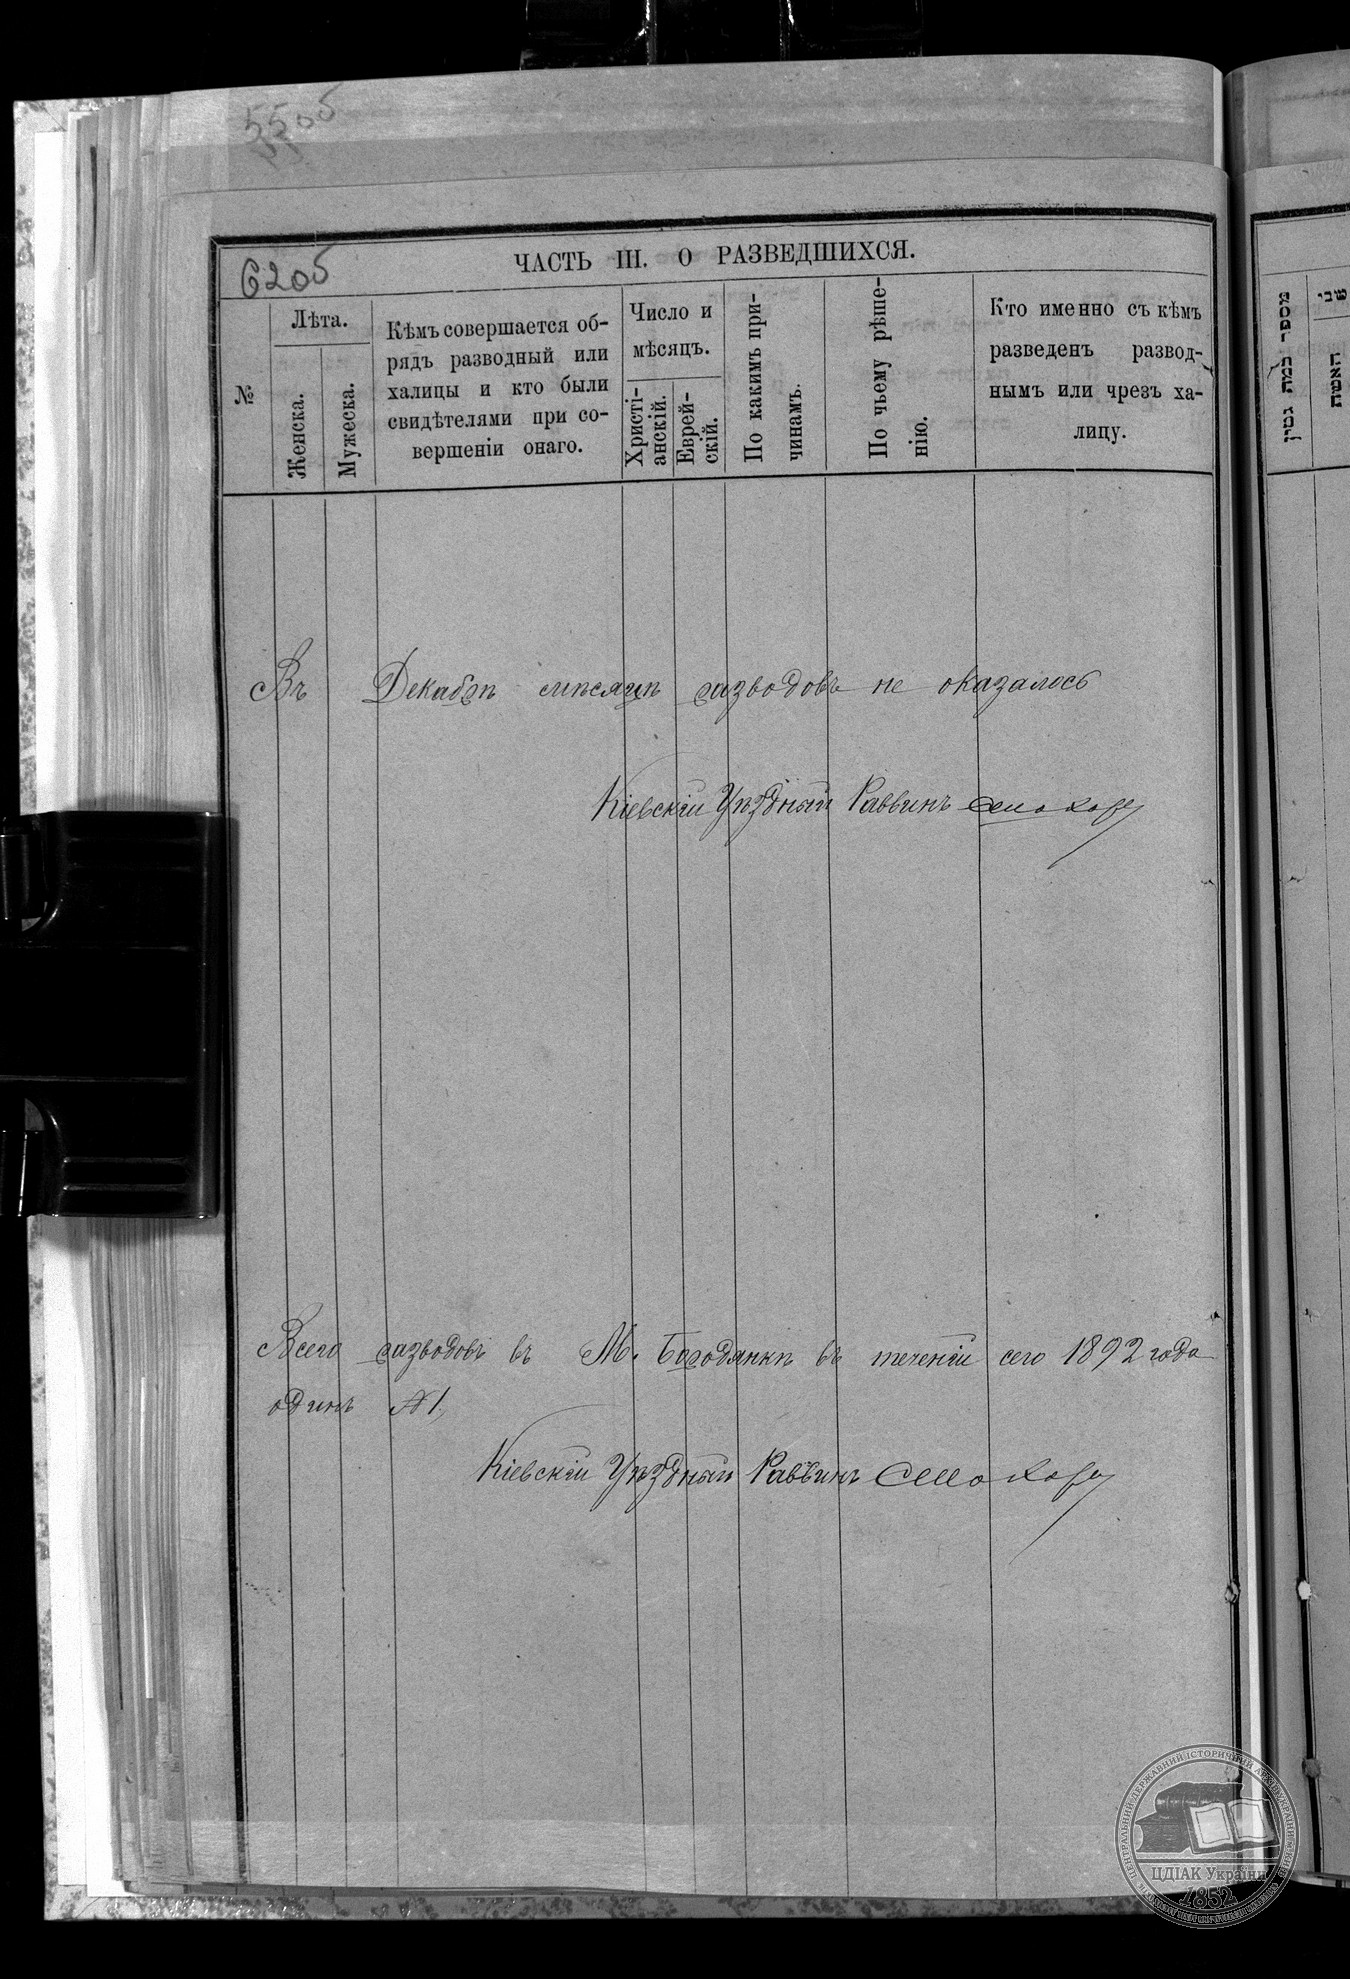 6205
ЧАСТЬ III. О РАЗВЕДШИХСЯ.
№
Лѣта.
Женска.
Мужеска.
Кѣмъ совершается об-
рядъ разводный или
халицы и кто были
свидѣтелями при со-
вершеніи онаго.
Число и
мѣсяцъ.
Христі-
анскій.
Еврей-
скій.
По какимъ при-
чинамъ.
По чьему рѣше-
нію.
Кто именно съ кѣмъ
разведенъ развод-
нымъ или чрезъ ха-
лицу.
Въ Декабрѣ мѣсяцѣ разводовъ не оказалось
Кіевскій Уѣздный Раввинъ
Всего разводовъ въ М. Бородянкѣ въ теченіи сего 1892 года
одинъ № 1,
Кіевскій Уѣздный Раввинъ
מספר כמת גטין
האשה
ЦДІАК України
1852